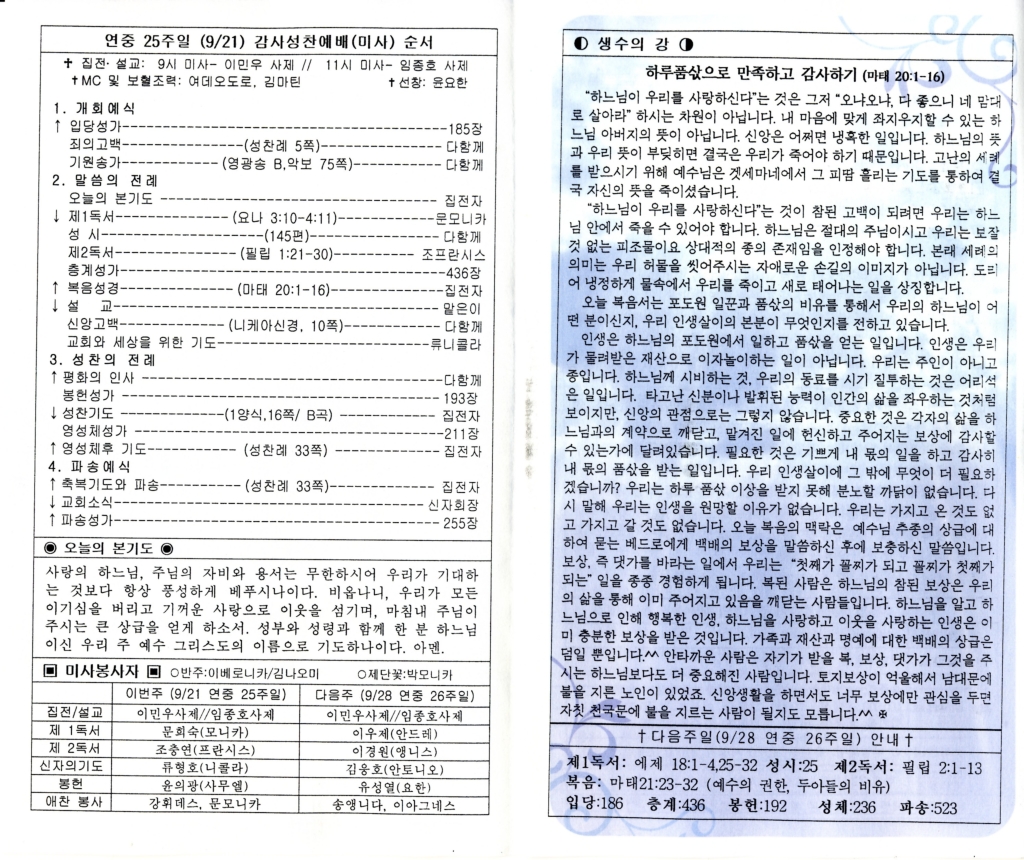 연중 25주일 (9/21) 감사성찬예배(미사) 순서
✝ 집전· 설교: 9시 미사- 이민우 사제 // 11시 미사- 임종호 사제
✝MC 및 보혈조력: 여데오도로, 김마틴 ✝선창: 윤요한
1. 개회예식
↑ 입당성가---185장
죄의고백---(성찬례 5쪽)---다함께
기원송가---(영광송 B,악보 75쪽)---다함께
2. 말씀의 전례
오늘의 본기도 ---집전자
↓ 제1독서---(요나 3:10-4:11)---문모니카
성 시---(145편)---다함께
제2독서---(필립 1:21-30)--- 조프란시스
층계성가---436장
↑ 복음성경---(마태 20:1-16)---집전자
↓ 설 교---맡은이
신앙고백---(니케아신경, 10쪽)---다함께
교회와 세상을 위한 기도---류니콜라
3. 성찬의 전례
↑ 평화의 인사 ---다함께
봉헌성가 ---193장
↓ 성찬기도 ---(1양식,16쪽/ B곡) --- 집전자
영성체성가 ---211장
↑ 영성체후 기도--- (성찬례 33쪽) --- 집전자
4. 파송예식
↑ 축복기도와 파송---(성찬례 33쪽)--- 집전자
↓ 교회소식---신자회장
↑ 파송성가---255장
◉ 오늘의 본기도 ◉
사랑의 하느님, 주님의 자비와 용서는 무한하시어 우리가 기대하
는 것보다 항상 풍성하게 베푸시나이다. 비옵나니, 우리가 모든
이기심을 버리고 기꺼운 사랑으로 이웃을 섬기며, 마침내 주님이
주시는 큰 상급을 얻게 하소서. 성부와 성령과 함께 한 분 하느님
이신 우리 주 예수 그리스도의 이름으로 기도하나이다. 아멘.
▣ 미사봉사자 ▣ ○반주:이베로니카/김나오미 ○제단꽃:박모니카
이번주 (9/21 연중 25주일) 다음주 (9/28 연중 26주일)
집전/설교 이민우사제//임종호사제 이민우사제//임종호사제
제 1독서 문희숙(모니카) 이우제(안드레)
제 2독서 조충연(프란시스) 이경원(앵니스)
신자의기도 류형호(니콜라) 김웅호(안토니오)
봉헌 윤의광(사무엘) 유성열(요한)
애찬 봉사 강휘데스, 문모니카 송앵니다, 이아그네스
◐ 생수의 강 ◑
하루품삯으로 만족하고 감사하기 (마태 20:1-16)
“하느님이 우리를 사랑하신다”는 것은 그저 “오냐오냐, 다 좋으니 네 맘대
로 살아라” 하시는 차원이 아닙니다. 내 마음에 맞게 좌지우지할 수 있는 하
느님 아버지의 뜻이 아닙니다. 신앙은 어쩌면 냉혹한 일입니다. 하느님의 뜻
과 우리 뜻이 부딪히면 결국은 우리가 죽어야 하기 때문입니다. 고난의 세례
를 받으시기 위해 예수님은 겟세마네에서 그 피땀 흘리는 기도를 통하여 결
국 자신의 뜻을 죽이셨습니다.
“하느님이 우리를 사랑하신다”는 것이 참된 고백이 되려면 우리는 하느
님 안에서 죽을 수 있어야 합니다. 하느님은 절대의 주님이시고 우리는 보잘
것 없는 피조물이요 상대적의 종의 존재임을 인정해야 합니다. 본래 세례의
의미는 우리 허물을 씻어주시는 자애로운 손길의 이미지가 아닙니다. 도리
어 냉정하게 물속에서 우리를 죽이고 새로 태어나는 일을 상징합니다.
오늘 복음서는 포도원 일꾼과 품삯의 비유를 통해서 우리의 하느님이 어
떤 분이신지, 우리 인생살이의 본분이 무엇인지를 전하고 있습니다.
인생은 하느님의 포도원에서 일하고 품삯을 얻는 일입니다. 인생은 우리
가 물려받은 재산으로 이자놀이하는 일이 아닙니다. 우리는 주인이 아니고
종입니다. 하느님께 시비하는 것, 우리의 동료를 시기 질투하는 것은 어리석
은 일입니다. 타고난 신분이나 발휘된 능력이 인간의 삶을 좌우하는 것처럼
보이지만, 신앙의 관점으로는 그렇지 않습니다. 중요한 것은 각자의 삶을 하
느님과의 계약으로 깨닫고, 맡겨진 일에 헌신하고 주어지는 보상에 감사할
수 있는가에 달려있습니다. 필요한 것은 기쁘게 내 몫의 일을 하고 감사히
내 몫의 품삯을 받는 일입니다. 우리 인생살이에 그 밖에 무엇이 더 필요하
겠습니까? 우리는 하루 품삯 이상을 받지 못해 분노할 까닭이 없습니다. 다
시 말해 우리는 인생을 원망할 이유가 없습니다. 우리는 가지고 온 것도 없
고 가지고 갈 것도 없습니다. 오늘 복음의 맥락은 예수님 추종의 상급에 대
하여 묻는 베드로에게 백배의 보상을 말씀하신 후에 보충하신 말씀입니다.
보상, 즉 댓가를 바라는 일에서 우리는 “첫째가 꼴찌가 되고 꼴찌가 첫째가
되는” 일을 종종 경험하게 됩니다. 복된 사람은 하느님의 참된 보상은 우리
의 삶을 통해 이미 주어지고 있음을 깨닫는 사람들입니다. 하느님을 알고 하
느님으로 인해 행복한 인생, 하느님을 사랑하고 이웃을 사랑하는 인생은 이
미 충분한 보상을 받은 것입니다. 가족과 재산과 명예에 대한 백배의 상급은
덤일 뿐입니다.^^ 안타까운 사람은 자기가 받을 복, 보상, 댓가가 그것을 주
시는 하느님보다도 더 중요해진 사람입니다. 토지보상이 억울해서 남대문에
불을 지른 노인이 있었죠. 신앙생활을 하면서도 너무 보상에만 관심을 두면
자칫 천국문에 불을 지르는 사람이 될지도 모릅니다.^^ ✠
✝다음주일(9/28 연중 26주일) 안내✝
제1독서: 에제 18:1-4,25-32 성시:25 제2독서: 필립 2:1-13
복음: 마태21:23-32 (예수의 권한, 두아들의 비유)
입당:186 층계:436 봉헌:192 성체:236 파송:523